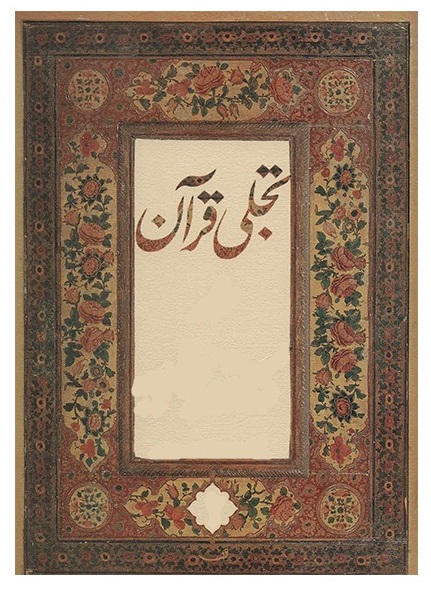 تجلی قرآن